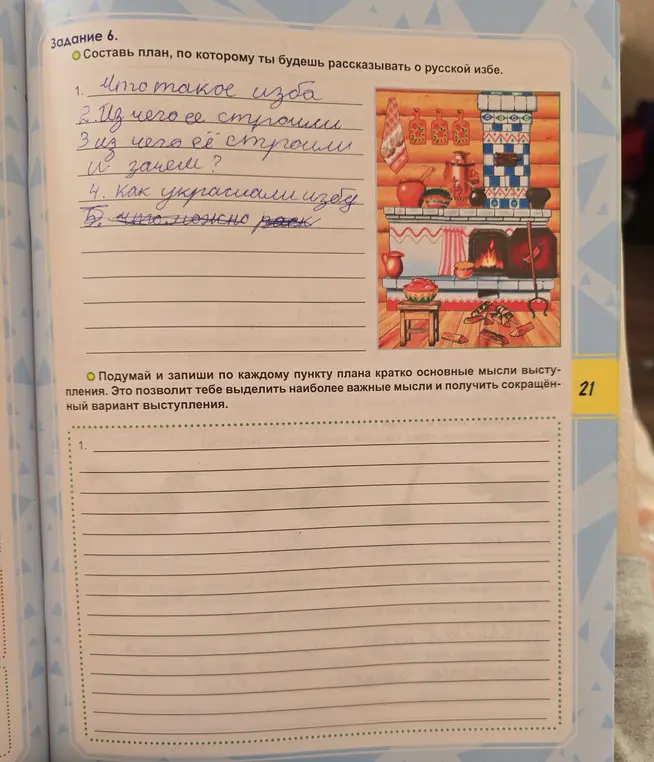 Задание 6.
Составь план, по которому ты будешь рассказывать о русской избе.
1. Что такое изба
2. Из чего ее строили
3 из чего её строили
и зачем?
4. Как украшали избу
5. что можно расск
Подумай и запиши по каждому пункту плана кратко основные мысли высту-
пления. Это позволит тебе выделить наиболее важные мысли и получить сокращён-
ный вариант выступления.
21
1.